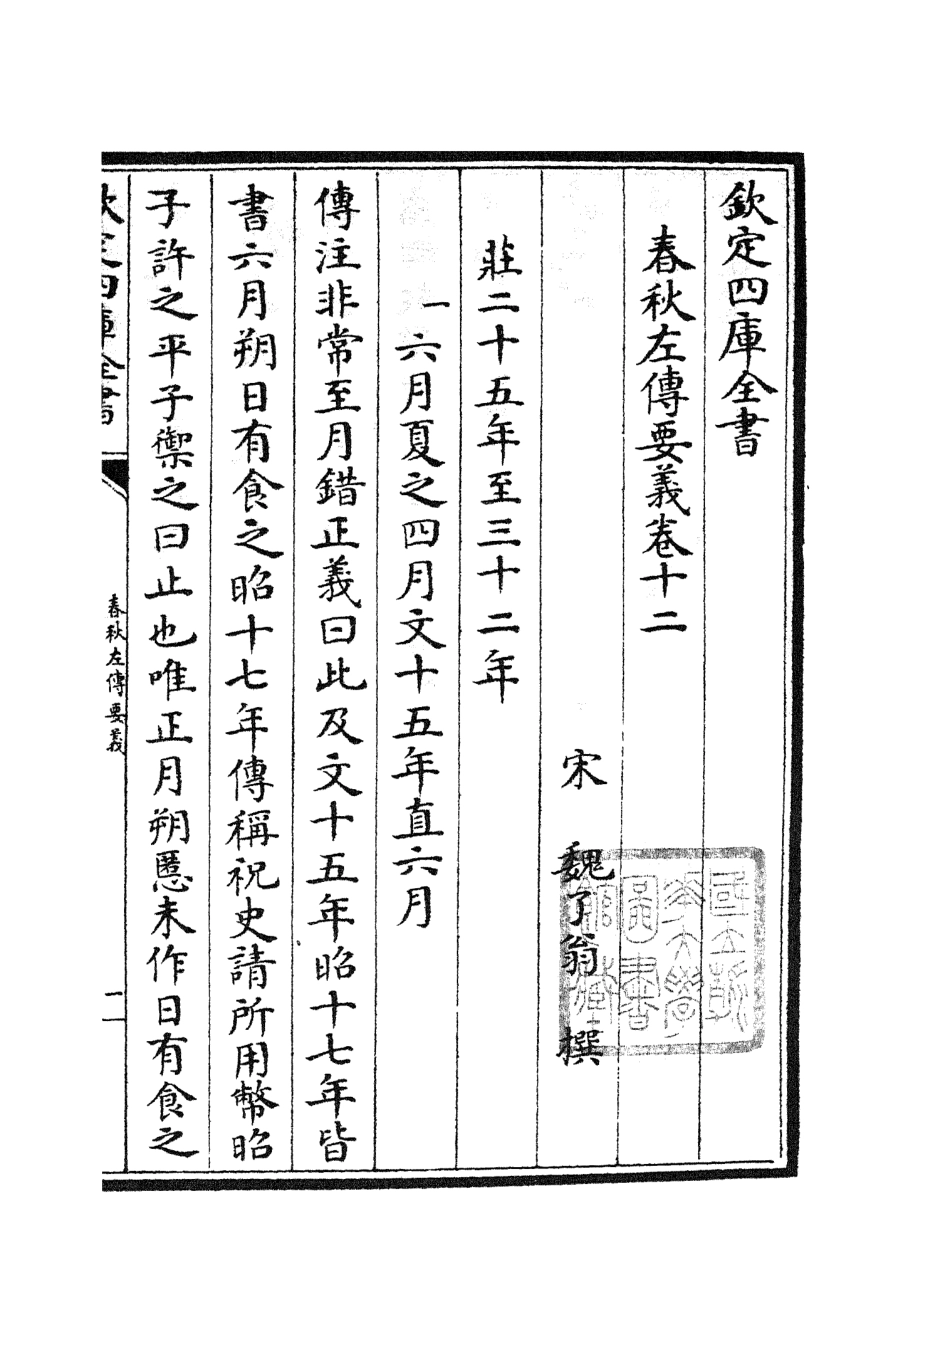 欽定四庫全書
春秋左傳要義卷十二
宋 魏了翁 撰
莊二十五年至三十二年
一六月夏之四月文十五年直六月
傳注非常至月錯正義曰此及文十五年昭十七年皆
書六月朔日有食之昭十七年傳稱祝史請所用幣昭
子許之平子禦之曰止也唯正月朔慝未作日有食之
欽定四庫全書
春秋左傳要義
二